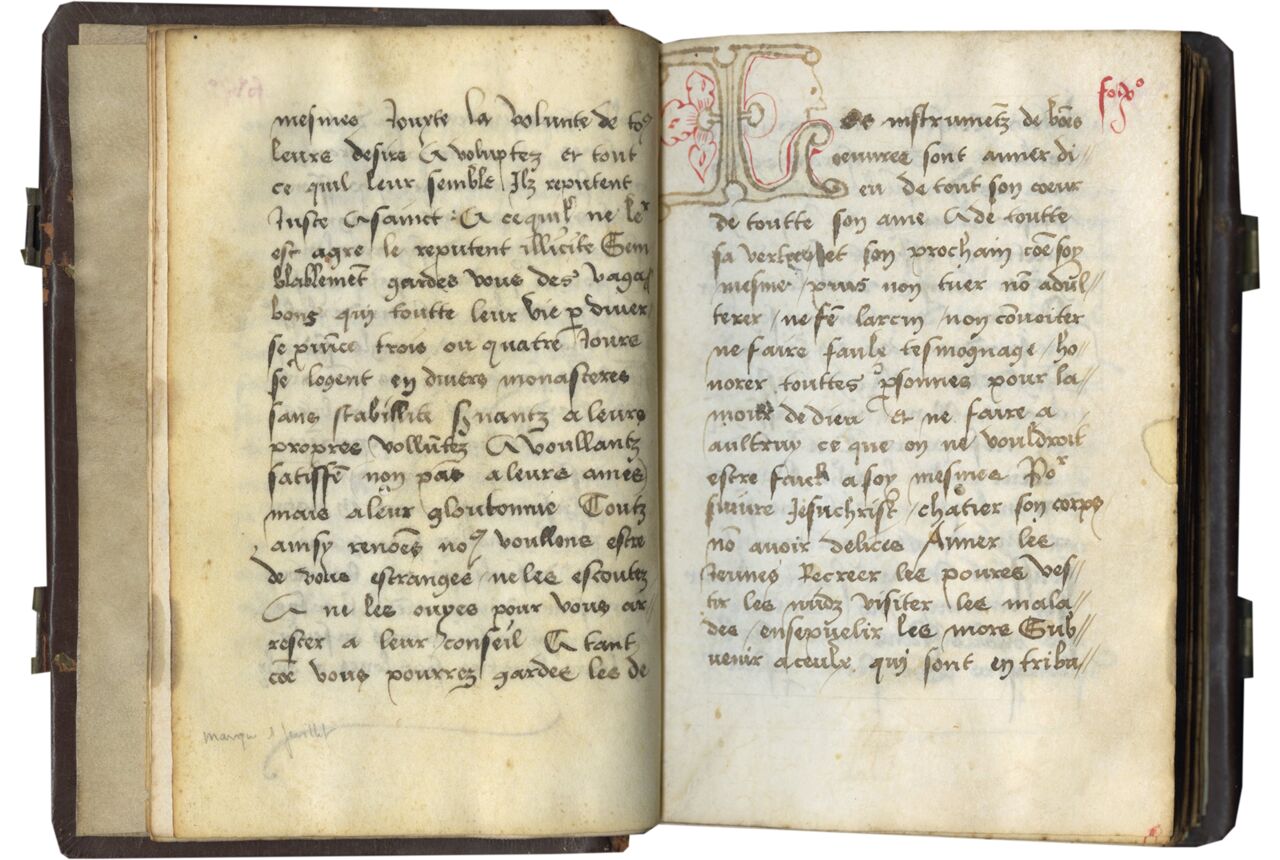 mesmes Jouxte la volunte de to9
leurs desirs & voluptez Et tout
ce quil leur semble Ilz reputent
Juste & sainct : & ce quilz ne le^r
est agre le reputent illicite Sem
blablemēt gardes vous des vaga//
bons qui toutte leur vie p diver
se pvince trois ou quatre Jours
se logent en divers monasteres
sans stabillite svantz a leurs
propres vollūtez & voullantz
satiffē non pas a leurs ames
mais a leur gloutonnie Toutz
ainsy renōes no9 voullons estre
de vous estranges ne les escoutez
& ne les ouyes pour vous ar//
rester a leur conseil & tant
cōe vous pourrez gardes les de
manque 1 feuillet
es instrumētz de bōes
oeuvres sont aimer di//
eu de tout son coeur
de toutte son ame & de toutte
sa vertus et son prochain cōe soy
mesme / puis non tuer nō adul//
terer / ne fē larcin / non cōvoiter
ne faire faulx tesmognage / ho/
norer touttes psonnes pour la/
mour de dieu Et ne faire a
aultruy ce que on ne vouldroit
estre faict a soy mesmes Po^r
suivre Jesuchrist / chatier son corps
nō avoir delices Aimer les
Jeunes Recreer les poures ves//
tir les nudz visiter les mala//
des / ensepvelir les mors Sub//
venir a ceulx qui sont en tribu//